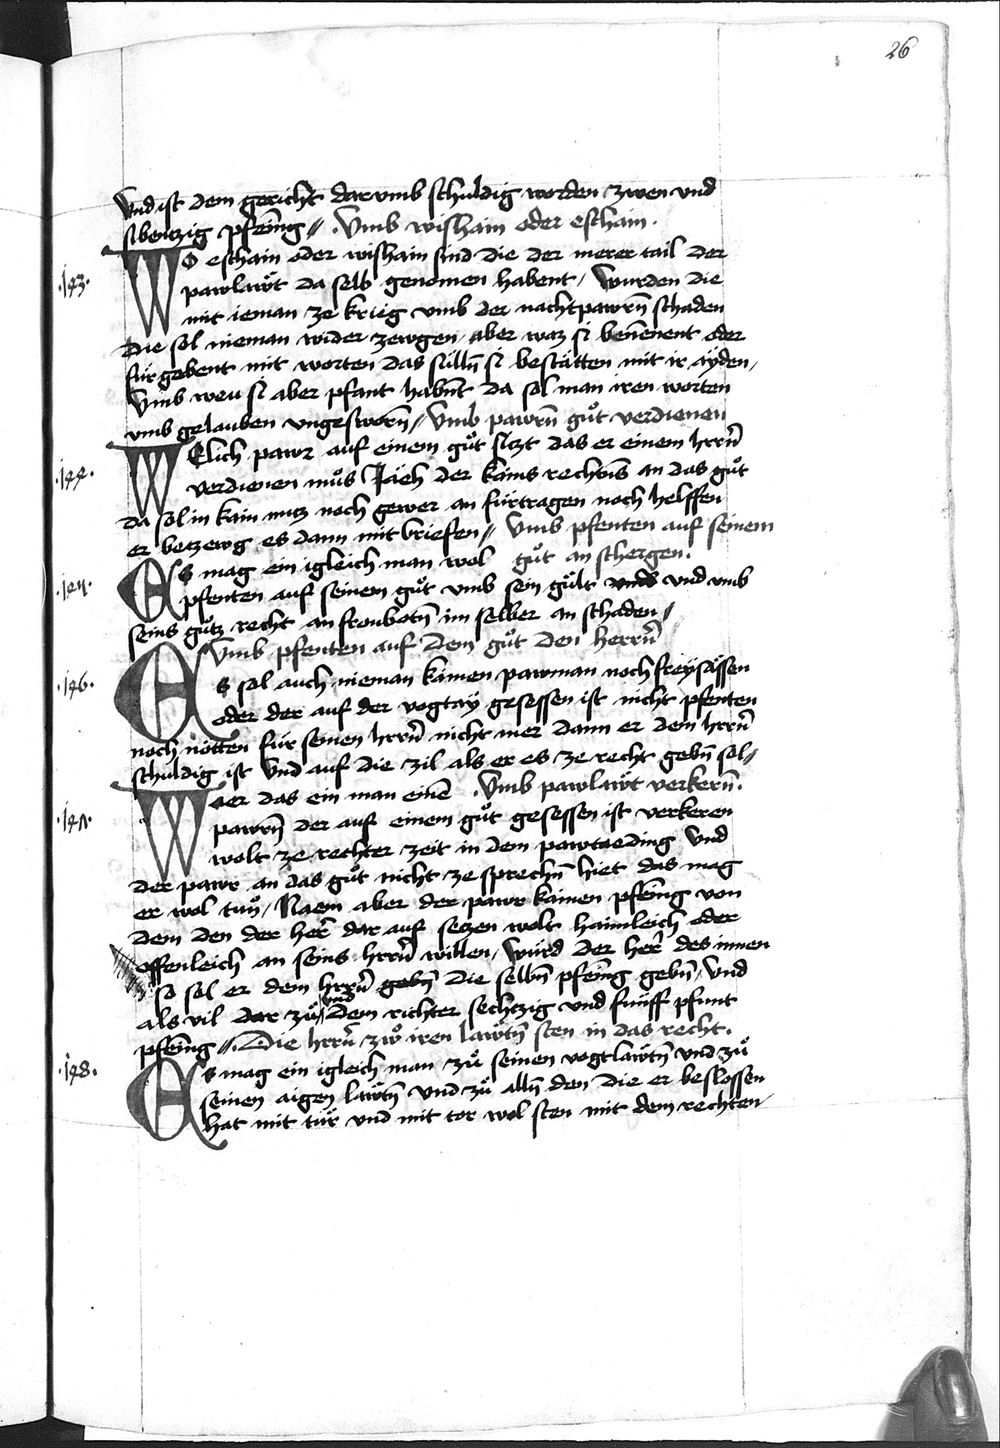 26
Vnd ist dem gericht darvmb schuldig worden zwen vnd
sibentzig pfenīg // . Vmb wishain oder eschain .
.143. WO eschain oder wishain sind die der merer tail der
pawlawt da selb genomen habent / Wurden die
mit ieman ze krieg vmb der nachtpawrn̄ schaden
Die sol nieman wider zewgen / aber waz si benēnent oder
fürgebent mit worten das sülln̄ si bestätten mit ir ayden /
Vmb weu si aber pfant habn̄t da sol man iren worten
vmb gelauben vngesworn̄ // Vmb pawrn̄ gůt verdienen
.144. WElich pawr auf einem gůt sitzt das er einem hrrn̄
verdienen můs Jäch der kains rechtn̄s an das gůt
da sol in kain nutz noch gewer an fürtragen noch helffen
er betzewg es dann mit briefen // Vmb pfenten auf seinem
.145. ES mag ein igleich man wol gůt an schergen .
pfenten auf seinem gůt vmb sein gült vnd vmb
seins gůtz recht an fronbotn̄ im selber an schaden //
Vmb pfenten auf dem gůt den herrn̄
.146. ES sol auch nieman kainen pawman noch freysässen
oder der auf der vogtay gesessen ist nicht pfenten
noch nötten für seinen hrrn̄ nicht mer dann er dem hrrn̄
schuldig ist Vnd auf die zil als er es ze recht gebn̄ sol //
.147. Waer das ein man einē . Vmb pawlawt verkern̄ .
pawrn̄ der auf einem gůt gesessen ist verkeren
wolt ze rechter zeit in dem pawtaeding Vnd
der pawr an das gůt nicht ze sprechn̄ hiet das mag
er wol tun̄ / Naem aber der pawr kainen pfenīg von
dem den der her̄ dar auf setzen wolt haimleich oder
offenleich an seins hrrn̄ willen / Würd der her̄ des innen
so sol er dem hrrn̄ gebn̄ die selbn̄ pfenīg gebn̄ / Vnd
als vil dar zů vnd dem richter sechtzig vnd fünff pfunt
pfenīg // . Die hrrn̄ zů iren lawtn̄ sten in das recht .
.148. ES mag ein igleich man zů seinen vogtlawtn̄ vnd zů
seinen aigen lawtn̄ Vnd zů alln̄ den die er beslossen
hat mit tür vnd mit tor wol sten mit dem rechten